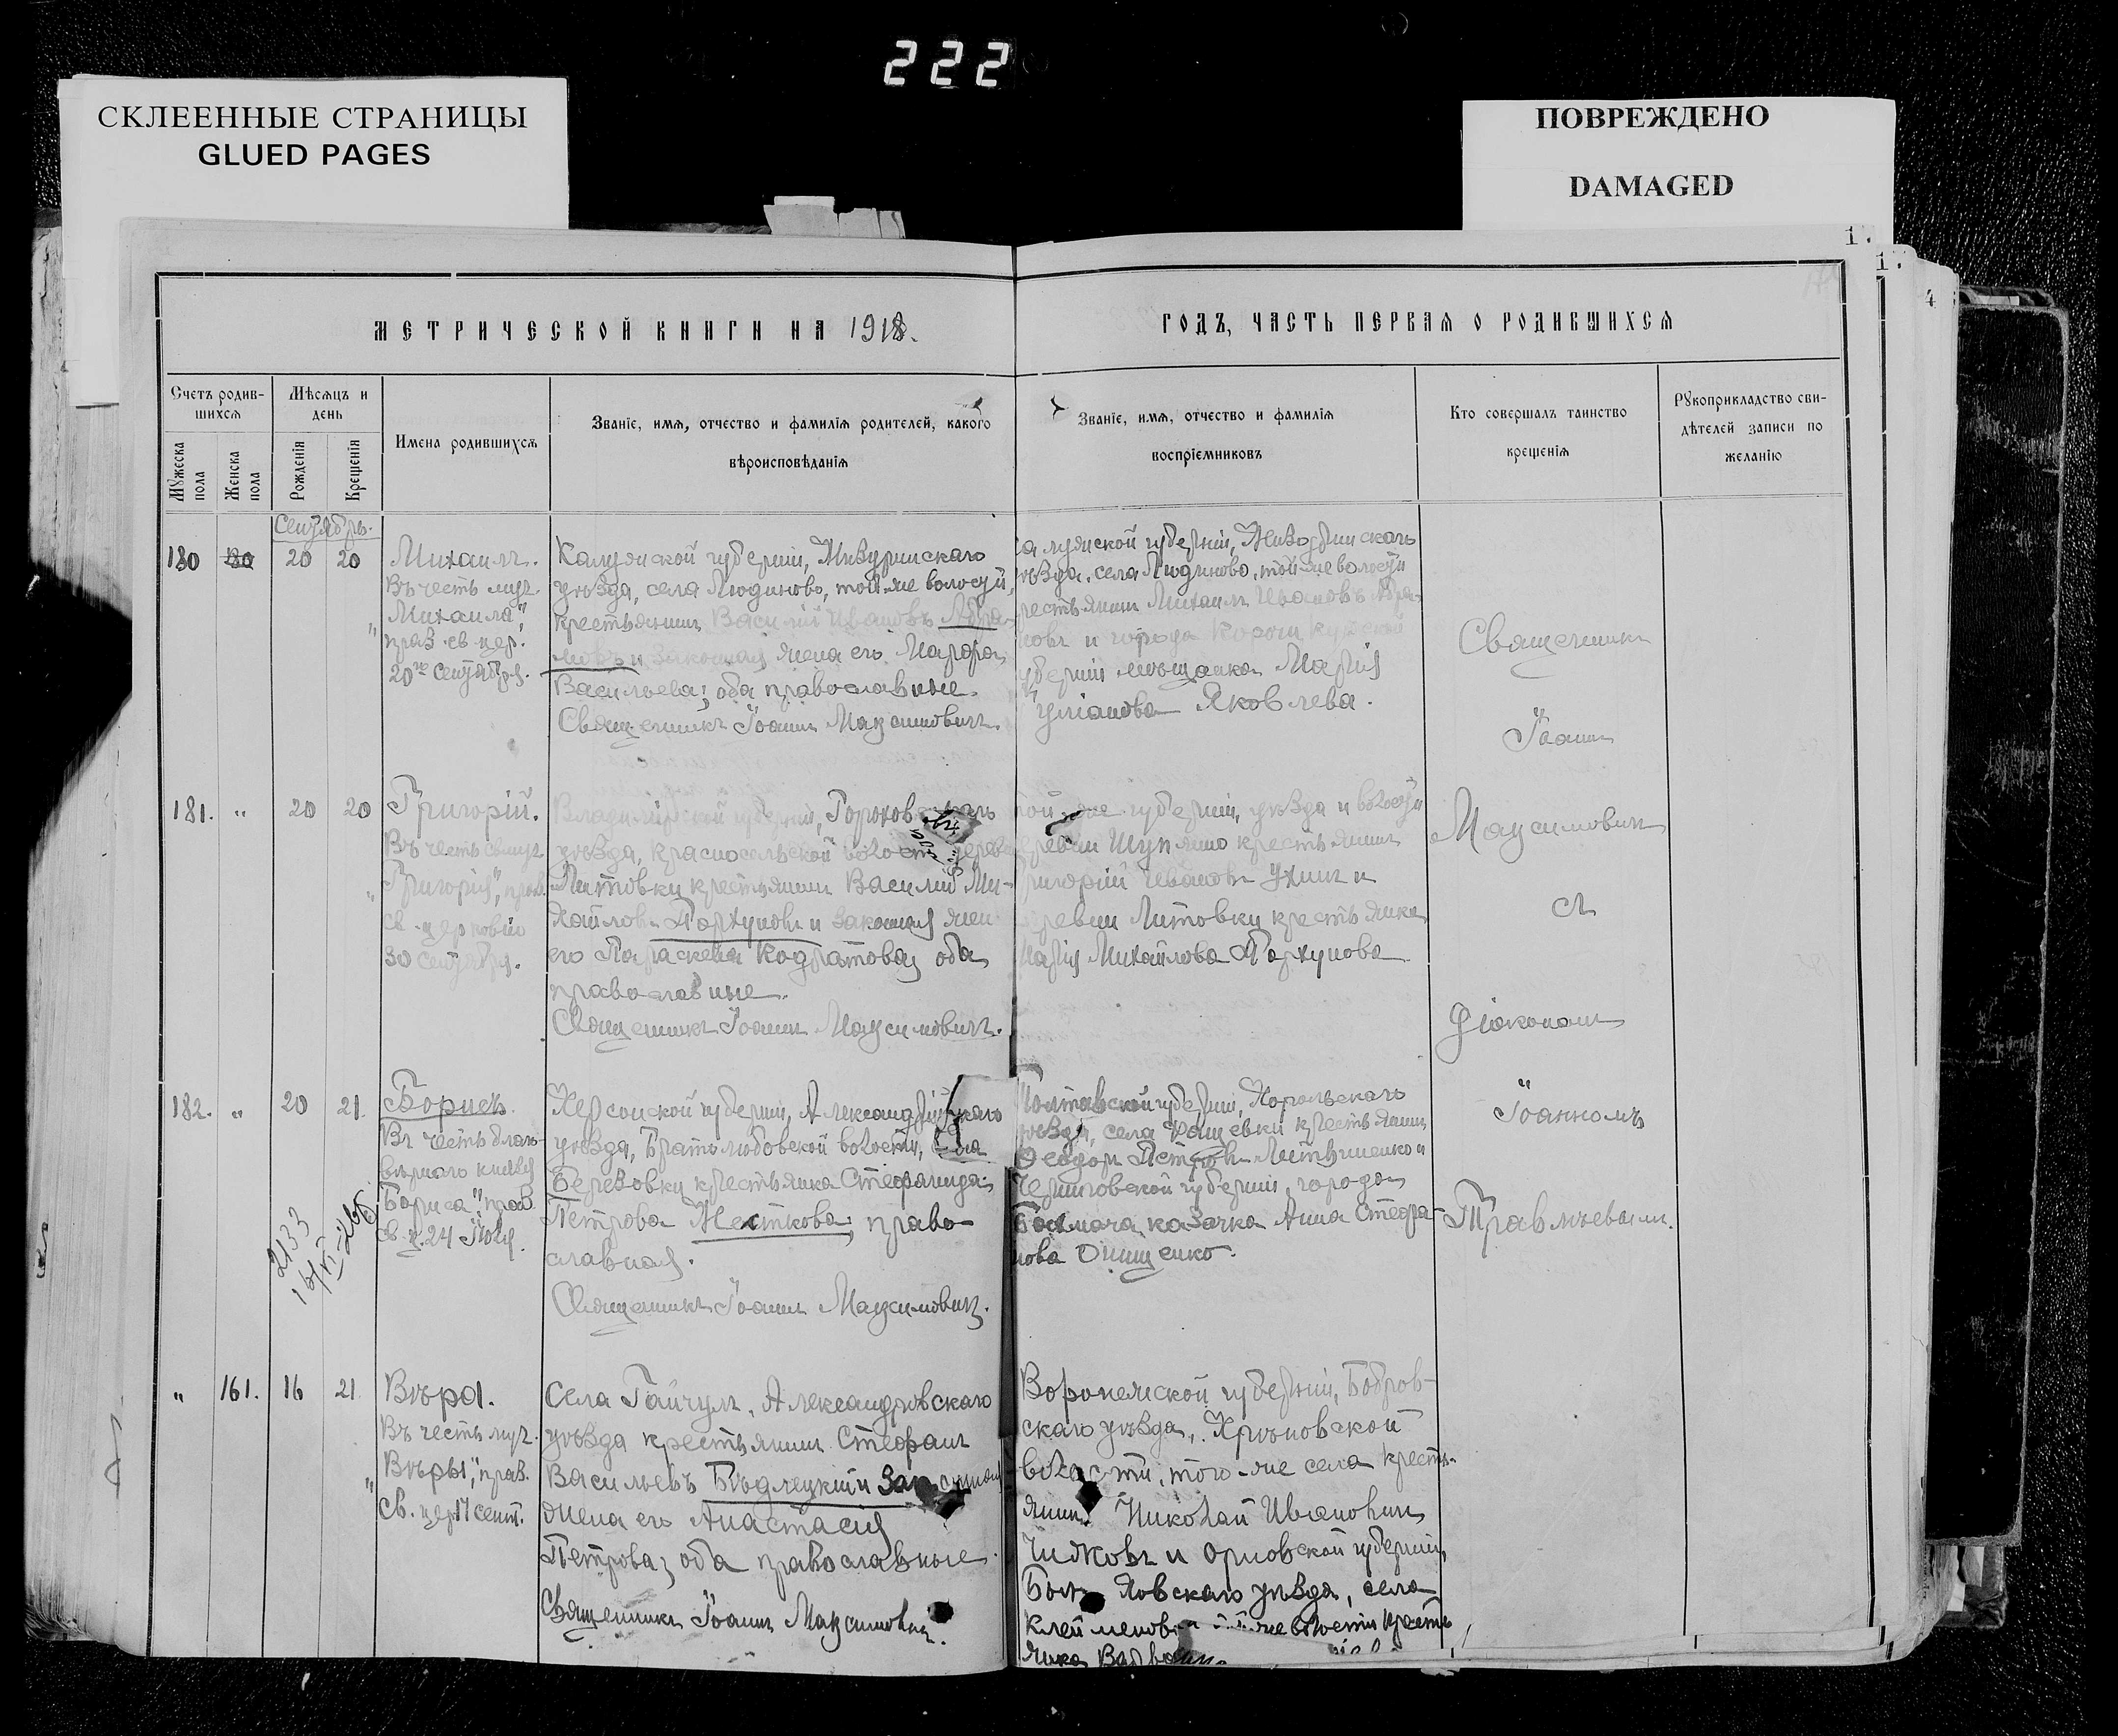 222
СКЛЕЕННЫЕ СТРАНИЦЫ
GLUED PAGES
ПОВРЕЖДЕНО
DAMAGED
МЕТРИЧЕСКОЙ КНИГИ НА 1918.
ГОДЪ, ЧАСТЬ ПЕРВАЯ О РОДИВШИХСЯ
Счетъ родив-
шихся
Мужеска пола
Женска пола
Мѣсяцъ и
день
Рожденія
Крещенія
Имена родившихся
Званіе, имя, отчество и фамилія родителей, какого
вѣроисповѣданія
Званіе, имя, отчество и фамилія
воспріемниковъ
Кто совершалъ таинство
крещенія
Рукоприкладство сви-
дѣтелей записи по
желанію
Сентябрь.
180 20 20
Михаилъ.
Въ честь муч.
Михаила",
прав. св. цер.
20го Сентября.
Калужской губерніи, Жиздринскаго
уѣзда, села Людиново, той-же волости,
крестьянинъ Василій Ивановъ Абра-
мовъ и законная жена его Марфа
Васильева; оба православные.
Священникъ Іоаннъ Максимовичъ.
алужской губерніи, Жиздринскаго
уѣзда, села Людиново, той-же волости
рестьянинъ Михаилъ Ивановъ Абра-
мовъ и города Корочи Курской
уберніи мѣщанка Марія
Яковлева.
181. " 20 20
Григорій.
Въ честь свмуч.
Григорія", прав.
св. церковію
30 Сентября.
Владимірской губерніи, Горохов
уѣзда, Красносельской волост дерев
Литовки крестьянинъ Василій Ми-
хайловъ Пархуновъ и законная жен
его Параскева Кодратова, оба
православные.
Священникъ Іоаннъ Максимовичъ.
той же губерніи, уѣзда и волости
еревни крестьянинъ
ригорій Ивановъ Ухинъ и
еревни Литовки крестьянка
арія Михайлова Пархунова
182. " 20 21.
Борисъ.
Въ честь благо-
вѣрнаго князя
Бориса", прав.
св. ц. 24 Іюля.
2133
Херсонской губерніи, Александрійскаго
уѣзда, Братолюбовской волости, села
Березовки крестьянка Стефанида
Петрова Жесткова; право-
славная.
Священникъ Іоаннъ Максимовичъ.
Полтавской губерніи, Хорольскаго
уѣзда, села крестьянинъ
Феодоръ Петровъ Литвиненко и
Черниговской губерніи, города
Бахмача казачка Анна Стефа-
нова Онищенко.
" 161. 16 21
Вѣра.
Въ честь муч.
Вѣры", прав.
св. цер. 17 сент.
Села Гайчулъ, Александровскаго
уѣзда крестьянинъ Стефанъ
Васильевъ и законная
жена его Анастасія
Петрова; оба православные.
Священникъ Іоаннъ Максимовичъ.
Воронежской губерніи, Бобров-
скаго уѣзда, Хрѣновской
волости, того-же села кресть-
янинъ Николай Ивановичъ
Чижовъ и Орловской губерніи,
Бол ховскаго уѣзда, села
Клейменов же волости кресть
янка
Священникъ
Іоаннъ
Максимовичъ
съ
Діакономъ
Іоанномъ
Травлѣевымъ.